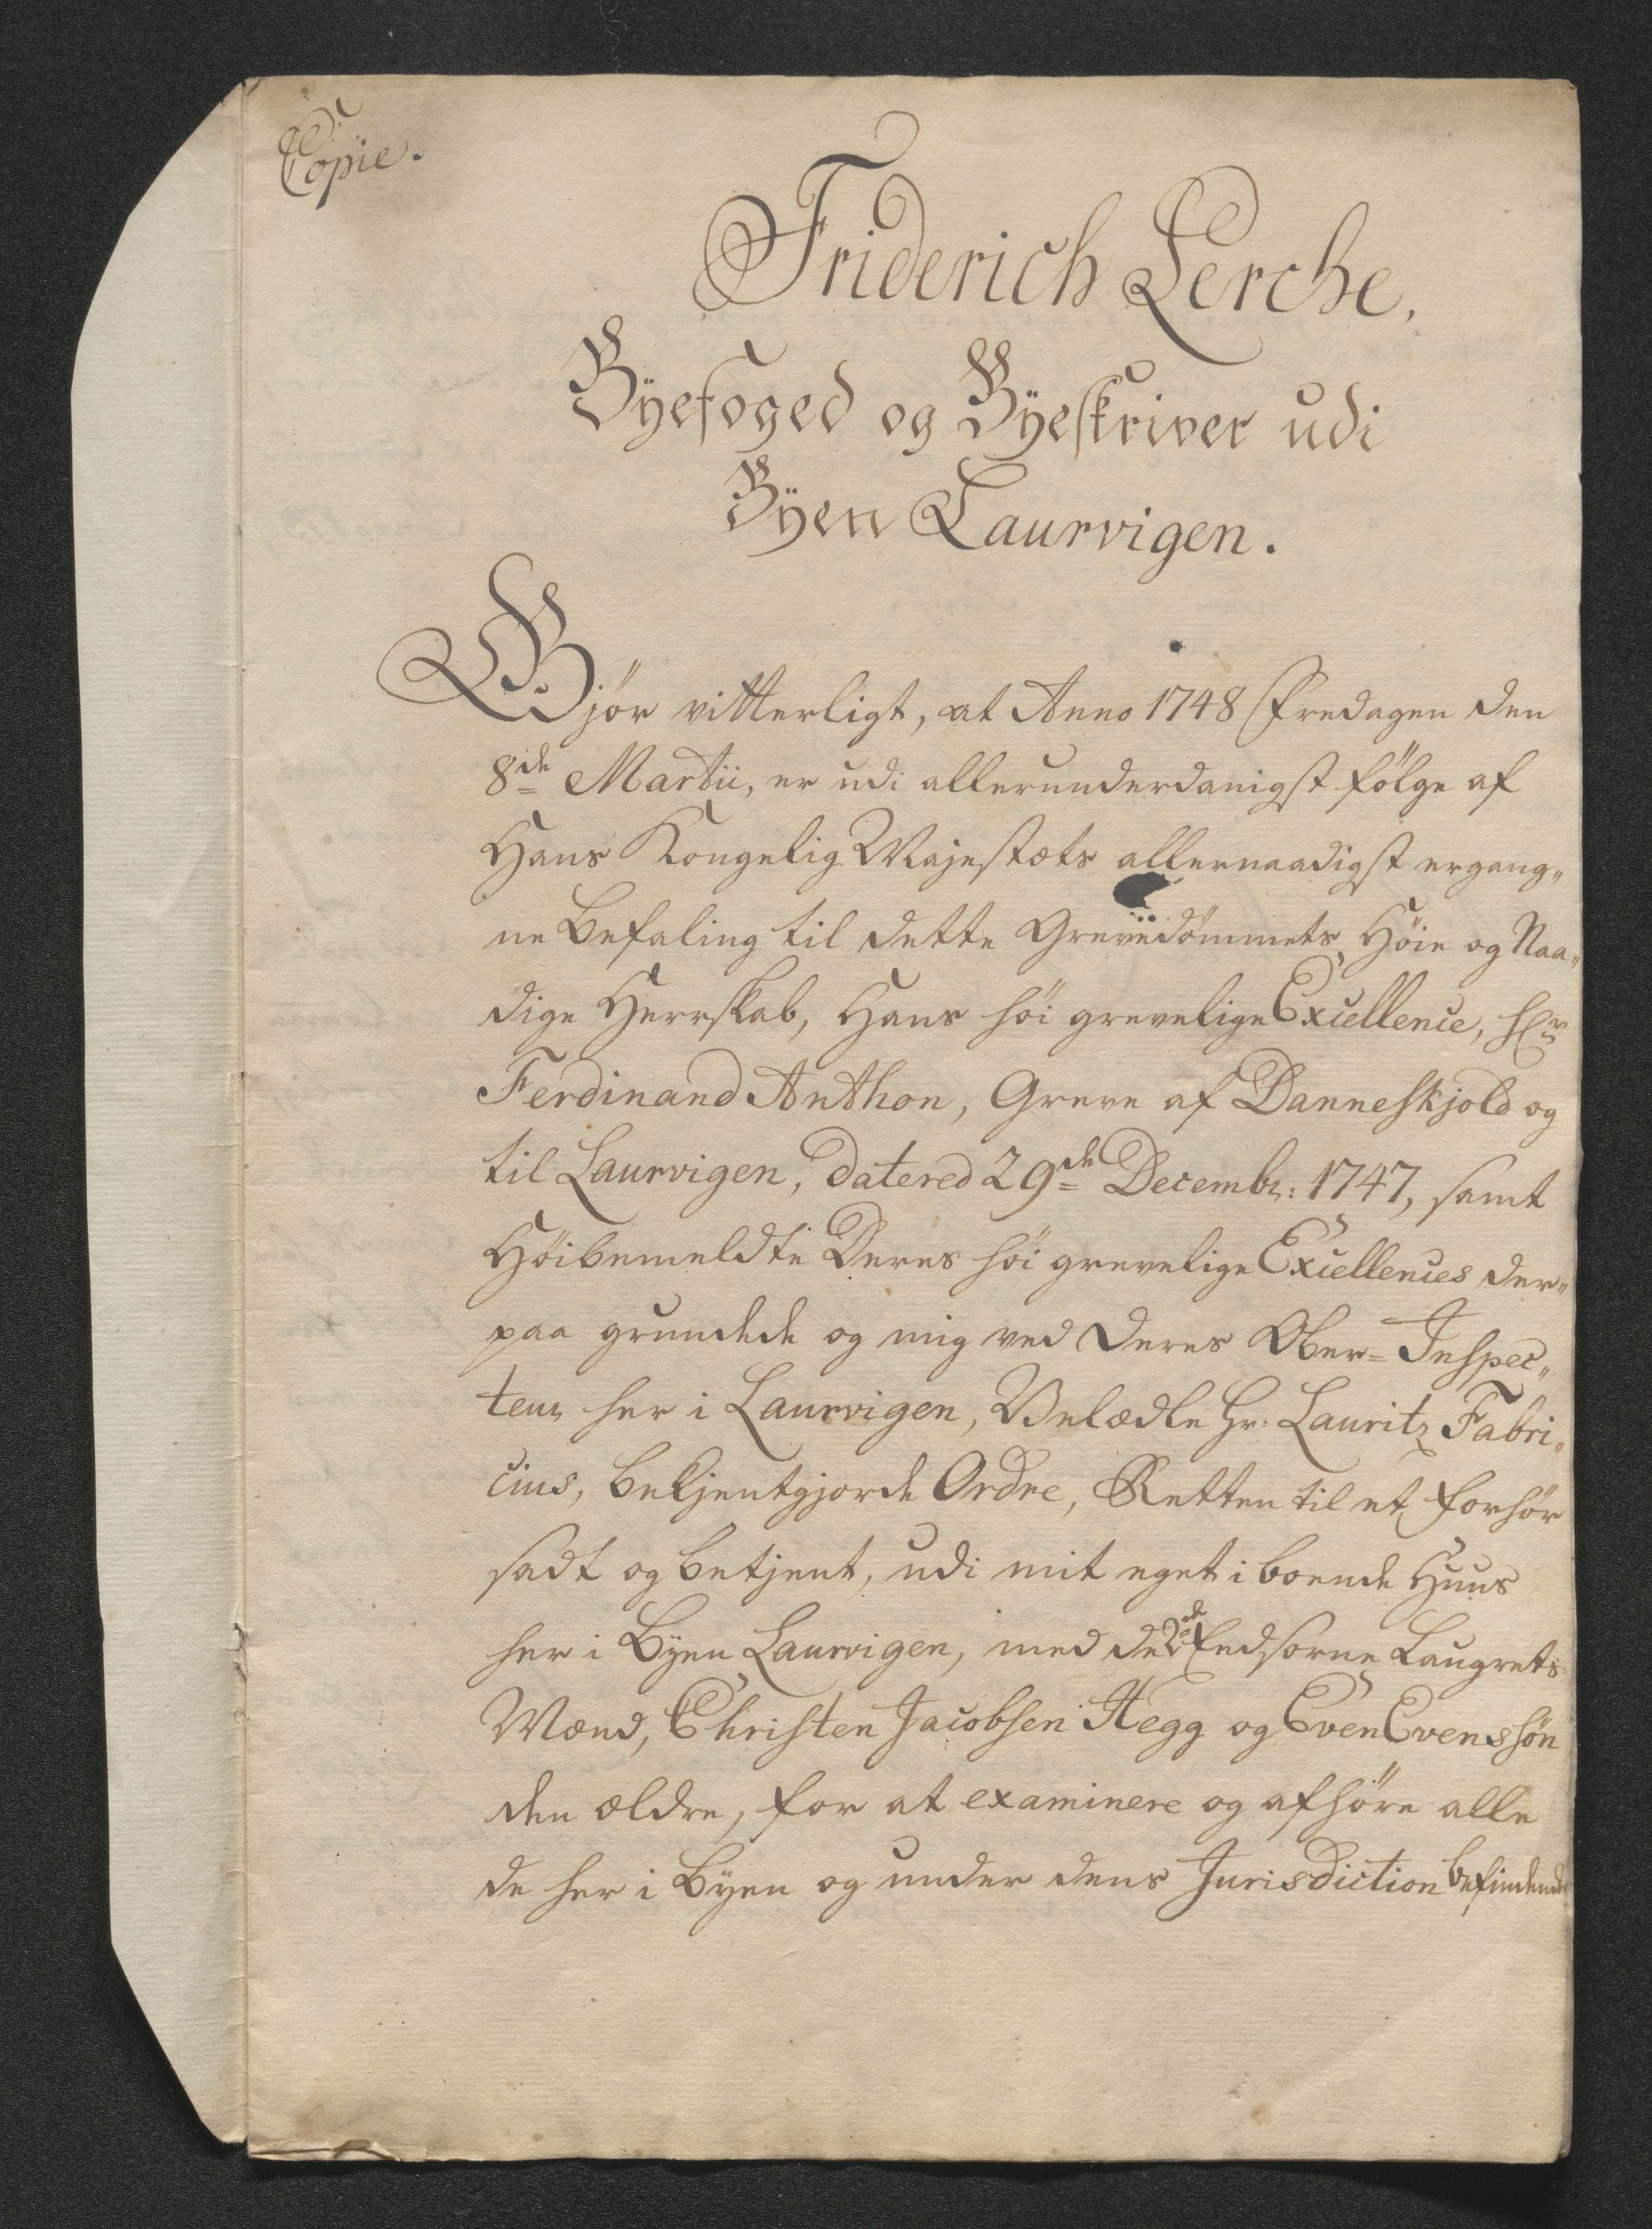 Copie.
Friderich Lerche,
Byefoged og Byeskriver udi
Byen Laurvigen.
Gjör vitterligt, at Anno 1748 Fredagen den
8de Martii, er udi allerunderdanigst fölge af
Hans Kongelig Majestæts allernaadigst ergang„
ne Befaling til dette Grevedömmets Höie og Naa„
dige Herrskab, Hans höi grevelige Excellence, Hr
Ferdinand Anthon, Greve af Danneskjold og
til Laurvigen, datered 29de Decembr: 1747, samt
Höibemeldte Deres höi grevelige Excellences der„
paa grundede og mig ved Deres Ober=Inspec„
teur her i Laurvigen, Velædle Hr: Lauritz Fabri„
cius, bekjentgjorde Ordre, Retten til et Forhör
sadt og betjent, udi mit eget iboende Huus
her i Byen Laurvigen, med de 2de Eedsorne Laugrets
Mænd, Christen Jacobsen Hegg og Even Evenssön
den ældre, for at examinere og afhöre alle
de her i Byen og under dens Jurisdiction befindende